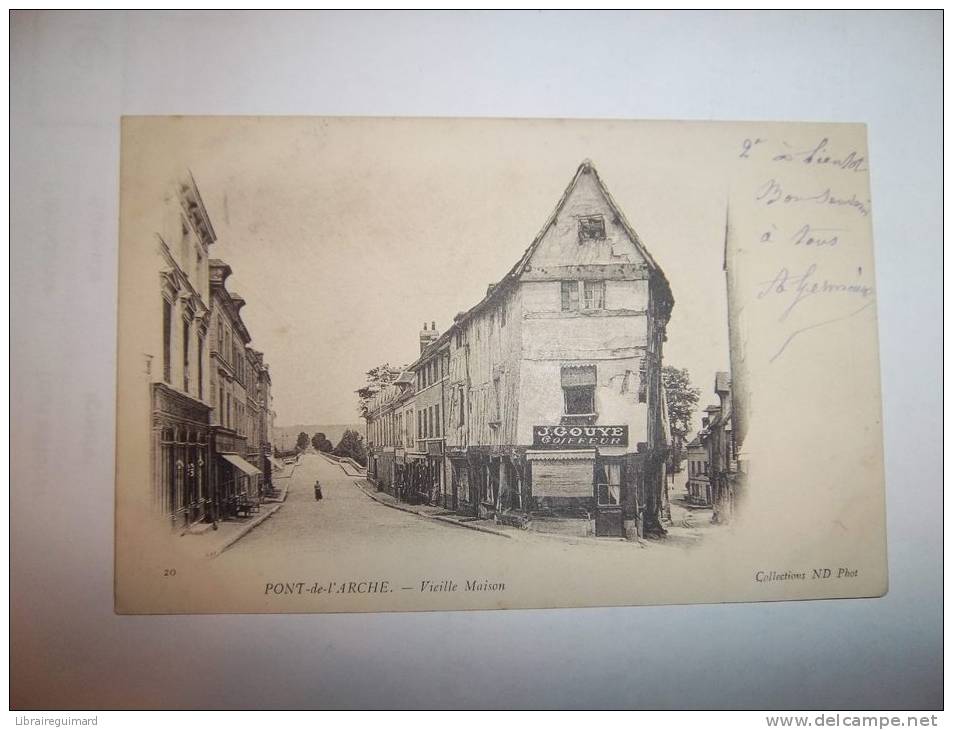 à bientôt
Bon
à tous
J. GOUYE
COIFFEUR
20
PONT-de-l'ARCHE. — Vieille Maison
Collections ND Phot
Libraireguimard
www.delcampe.net